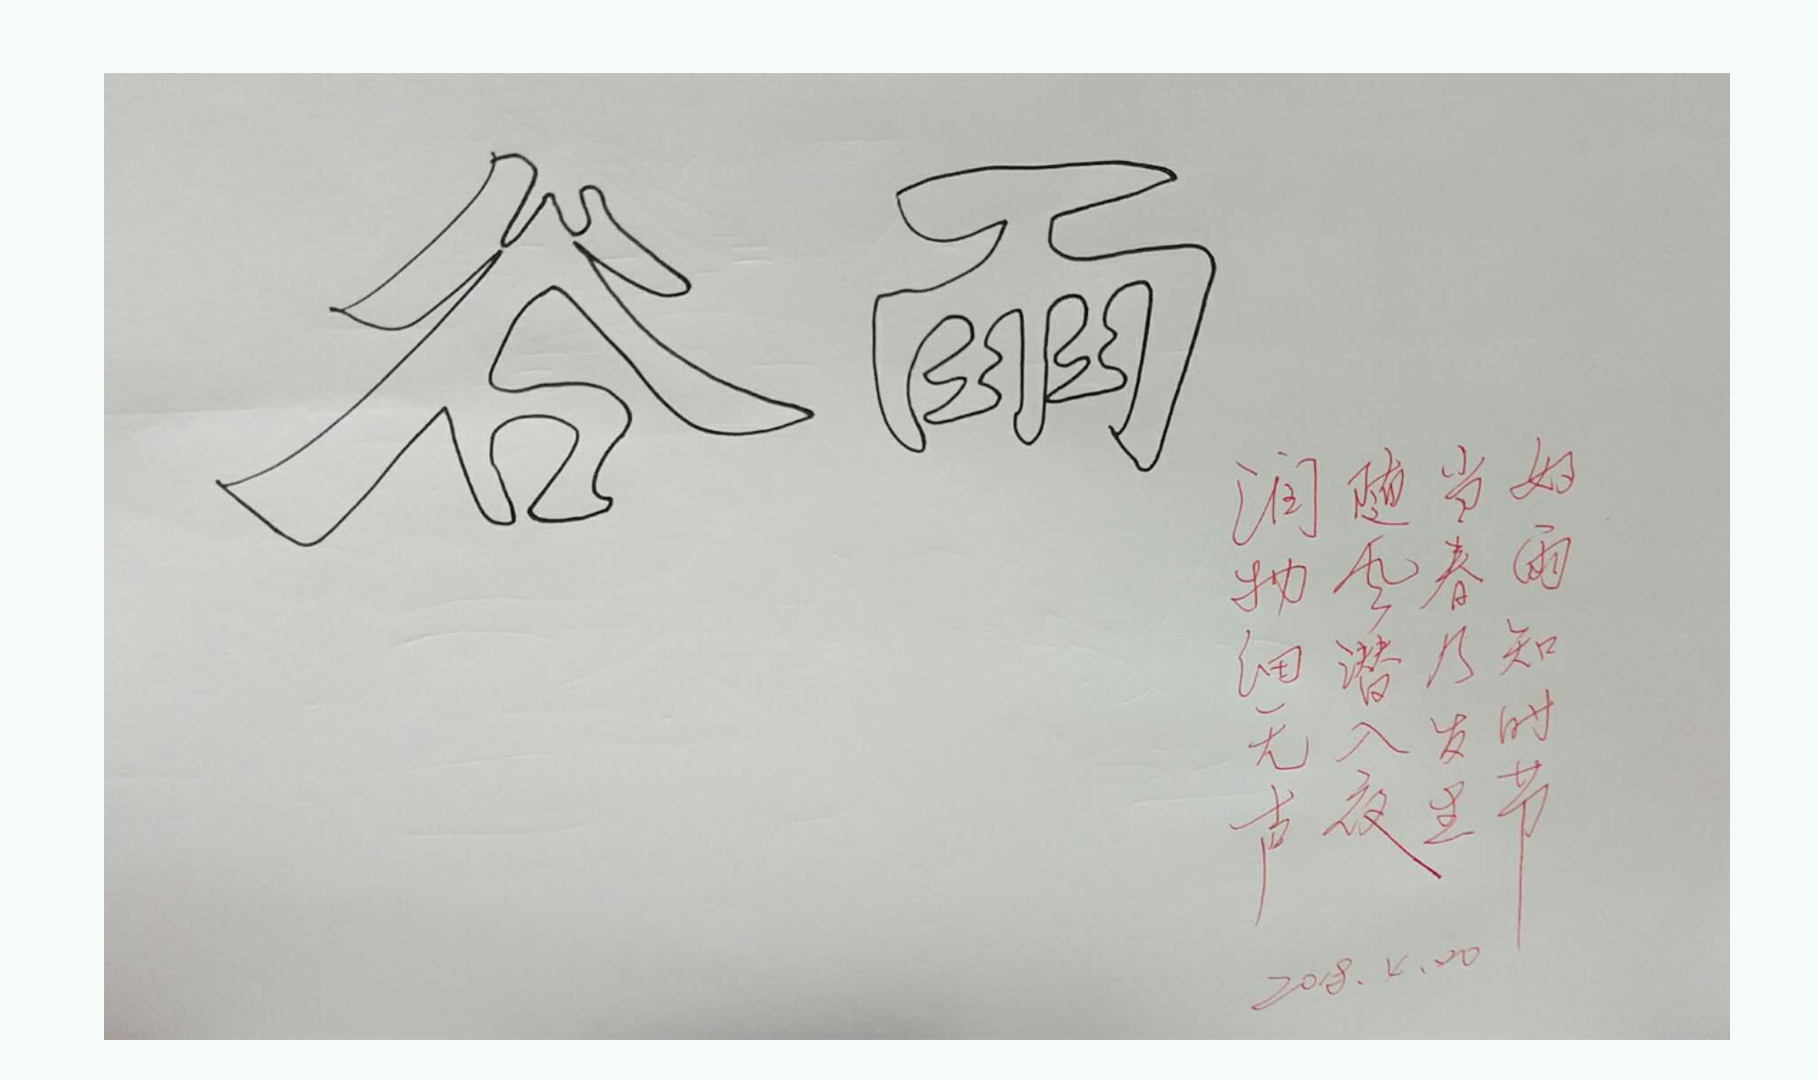 谷雨
好雨知时节
当春乃发生
随风潜入夜
润物细无声
2018.4.20